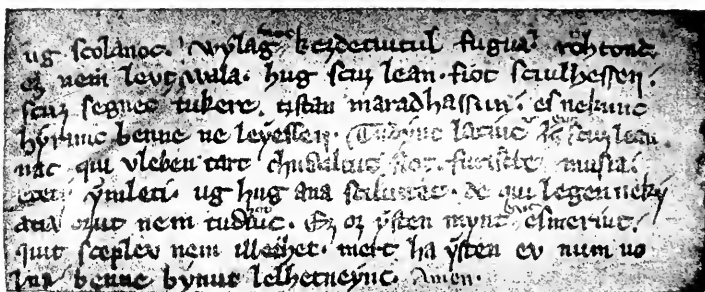 ug scolanoc. wylag kezdetuitul fugua. rohtonc
ez nem levt wala. hug scuz lean. fiot sciulhessen.
scuz segnec tukere. tistan maradhassun. es nekunc
hyrunc benne ne leyessen. Tudyuc latiuc scuz lean
nac qui vleben tart chudaltus fiot. furiscte musia.
etety ymleti. ug hug ana sciluttet. de qui legen neky
atia ozut nem tudhotiuc. Ez oz ysten mynt esmeriuc.
quit sceplev nem illethet. mert ha ysten ev num uo
lna benne bynut lelhetneync. Amen.